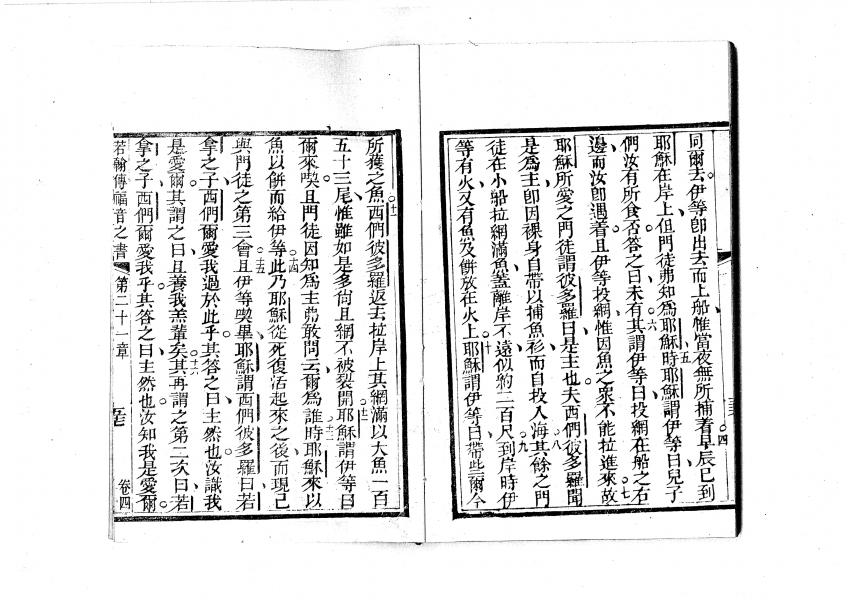 同爾去伊等即出去而上船惟當夜無所捕着四早辰已到
耶穌在岸上但門徒弗知為耶穌五時耶穌謂伊等曰兒子
們汝有所食否答之曰未有六其謂伊等曰投網在船之右
邊而汝即遇着且伊等投網惟因魚之衆不能拉進來七故
耶穌所愛之門徒謂彼多羅曰是主也夫西們彼多羅聞
是為主即因裸身自帶以捕魚衫而自投入海八其餘之門
徒在小船拉網滿魚蓋離岸不遠似約二百尺九到岸時伊
等有火又有魚及餅放在火上十耶穌謂伊等曰帶些爾今
所獲之魚十一西們彼多羅返去拉岸上其網滿以大魚一百
五十三尾惟雖如是多尙且網不被裂開十二耶穌謂伊等曰
爾來喫且門徒因知為主弗敢問云爾為誰十三時耶穌來以
魚以餅而給伊等十四此乃耶穌從死復活起來之後而現己
與門徒之第三會十五且伊等喫畢耶穌謂西們彼多羅曰若
拿之子西們爾愛我過於此乎其答之曰主然也汝識我
是愛爾其謂之曰且善我羔輩矣十六其再謂之第二次曰若
拿之子西們爾愛我乎其答之曰主然也汝知我是愛爾
若翰傳福音之書 第二十一章 卷四